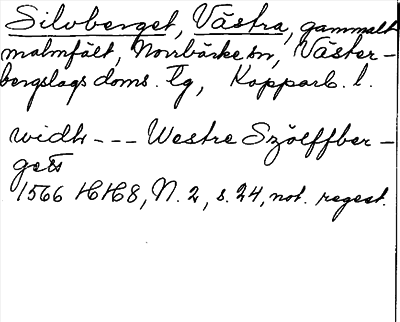 Silvberget, Västra, gammalt
malmfält, Norrbärke sn, Väster-
bergslags doms. tg, Kopparb. l.
widh --- Westre Szölffber-
gett
1566 HH8, N. 2, s. 24, not. regest.